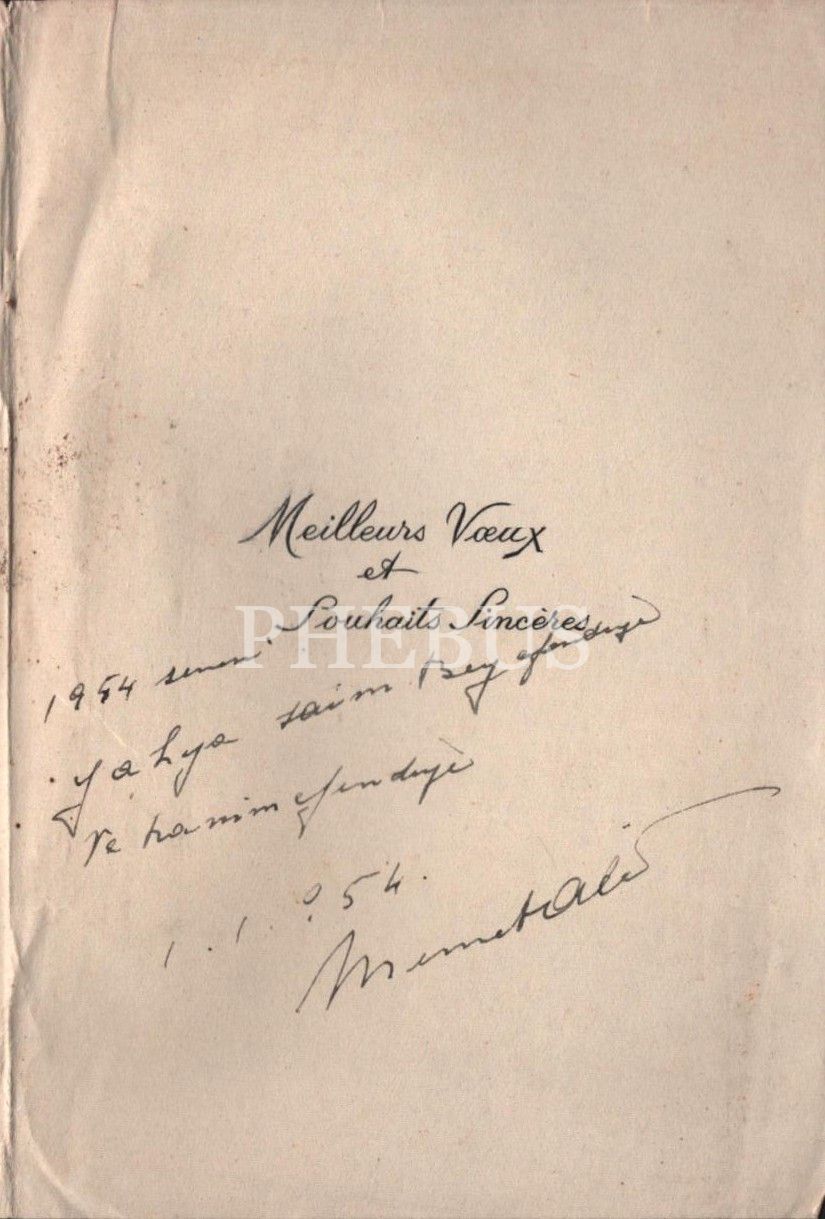 Meilleurs Vœux
et
Souhaits Sincères
PHEBUS
1954 senesi
Yahya Saim Beyefendiye
Ve hanımefendiye
1.1.954.
Memet Ali